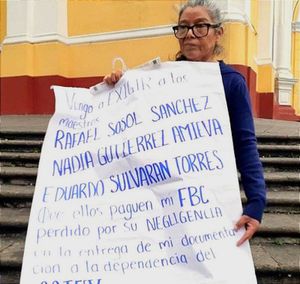 Vengo a EXIGIR a los
maestros
RAFAEL SOSOL SANCHEZ
NADIA GUTIERREZ AMIEVA
EDUARDO SULVARAN TORRES
Que ellos paguen mi FBC
perdido por su NEGLIGENCIA
en la entrega de mi documenta
ción a la dependencia del